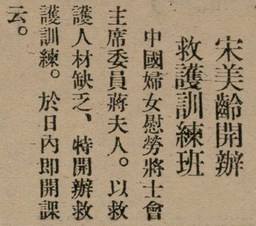 宋美齡開辦
救護訓練班
中國婦女慰勞將士會
主席委員蔣夫人。以救
護人材缺乏、特開辦救
護訓練。於日內即開課
云。